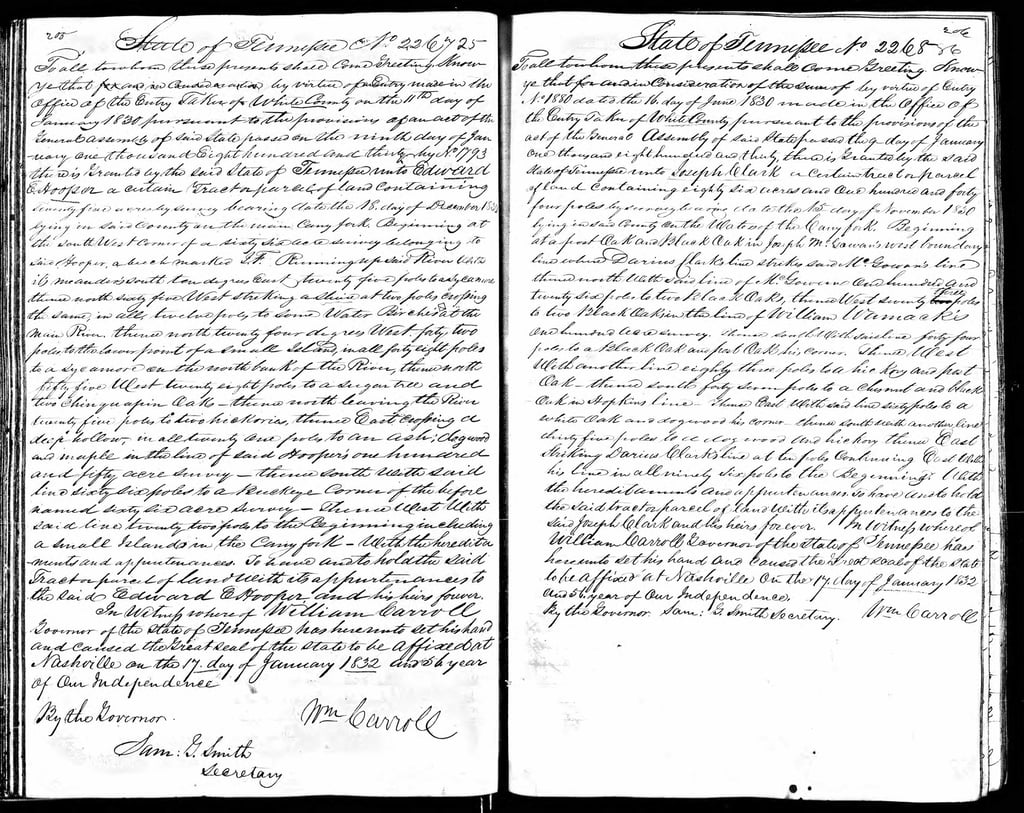 205
State of Tennessee No 226725
To all to whom these presents shall Come Greeting, Know
ye that for and in Consideration by virtue of an Entry made in the
Office of the Entry Taker of White County on the 11th day of
January 1830 pursuant to the provisions of an act of the
General assembly of said State passed on the ninth day of Jan
uary one thousand Eight hundred and thirty by No 1793
there is Granted by the said State of Tennessee unto Edward
C Hooper a certain Tract or parcel of land Containing
seventy five acres by survey bearing date the 18. day of December
lying in said County on the main Caney fork. Beginning at
the south West Corner of a sixty six acre survey belonging to
said Hooper, a beech marked Running up said River With
its meanders south ten degrees East twenty five poles to a sycamore
thence north sixty five West striking a at two poles crossing
the same, in all twelve poles to some Water Birches at the
main River. thence north twenty four degrees West forty two
poles to the lower point of a small Island, in all forty eight poles
to a sycamore on the north bank of the River, thence north
fifty five West twenty eight poles to a sugar tree and
two Chinquapin Oak – thence north leaving the River
twenty five poles to two hickories, thence East crossing a
deep hollow, in all twenty one poles to an ash, dogwood
and maple in the line of said Hooper's one hundred
and fifty acre survey – thence south With said
line sixty six poles to a Buckeye Corner of the before
named sixty six acre survey – Thence West With
said line twenty two poles to the Beginning including
a small Island in the Caney fork – With the heredita
ments and appurtenances. To have and to hold the said
Tract or parcel of land With its appurtenances to
the said Edward C Hooper and his heirs forever.
In Witness where of William Carroll
Governor of the State of Tennessee has hereunto set his hand
and caused the Great seal of the state to be affixed at
Nashville on the 17. day of January 1832 and 56 year
of Our Independence
By the Governor. Wm Carroll
Sam: G. Smith
Secretary
206
State of Tennessee No 22686
To all to whom these presents shall come Greeting Know
ye that for and in Consideration of the sum of by virtue of Entry
No 1880 dated the 16 day of June 1830 made in the Office of
the Entry Taker of White County pursuant to the provisions of the
act of the General Assembly of said State passed the 9 day of January
one thousand eight hundred and thirty, there is Granted by the said
State of Tennessee unto Joseph Clark a Certain tract or parcel
of land containing eighty six acres and One hundred and forty
four poles by survey bearing date the 15 day of November 1830
lying in said County on the Waters of the Caney fork. Beginning
at a post Oak and Black Oak in Joseph McGowan's west boundary
line where Darius Clark's line strikes said McGowen's line
thence north With said line of McGowens One hundred and
twenty six poles to two black Oaks, thence West seventy three poles
to two Black Oak in the line of William Wamack's
one hundred acre survey. thence south With said line forty four
poles to a Black Oak and post Oak his corner. Thence West
With another line eighty three poles to a hickory and post
Oak – thence south forty seven poles to a chesnut and black
Oak in Hopkins line – thence East With said line sixty poles to a
white Oak and dogwood his corner – thence south with another line
thirty five poles to a dogwood and hickory thence East
striking Darius Clark's line at ten poles Continuing East With
his line in all ninety six poles to the Beginning. With
the hereditaments and appurtenances. To have and to hold
the said tract or parcel of land With its appurtenances to the
said Joseph Clark and his heirs forever. In Witness where of
William Carroll Governor of the state of Tennessee has
hereunto set his hand and caused the Great seal of the state
to be affixed at Nashville on the 17. day of January 1832
and 56 year of Our Independence.
By the Governor. Sam: G. Smith Secretary. Wm Carroll